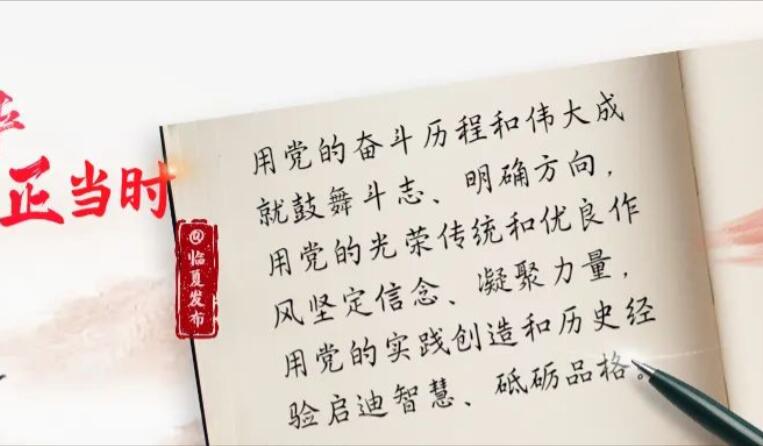 正当时
@临夏发布
用党的奋斗历程和伟大成
就鼓舞斗志、明确方向，
用党的光荣传统和优良作
风坚定信念、凝聚力量，
用党的实践创造和历史经
验启迪智慧、砥砺品格。